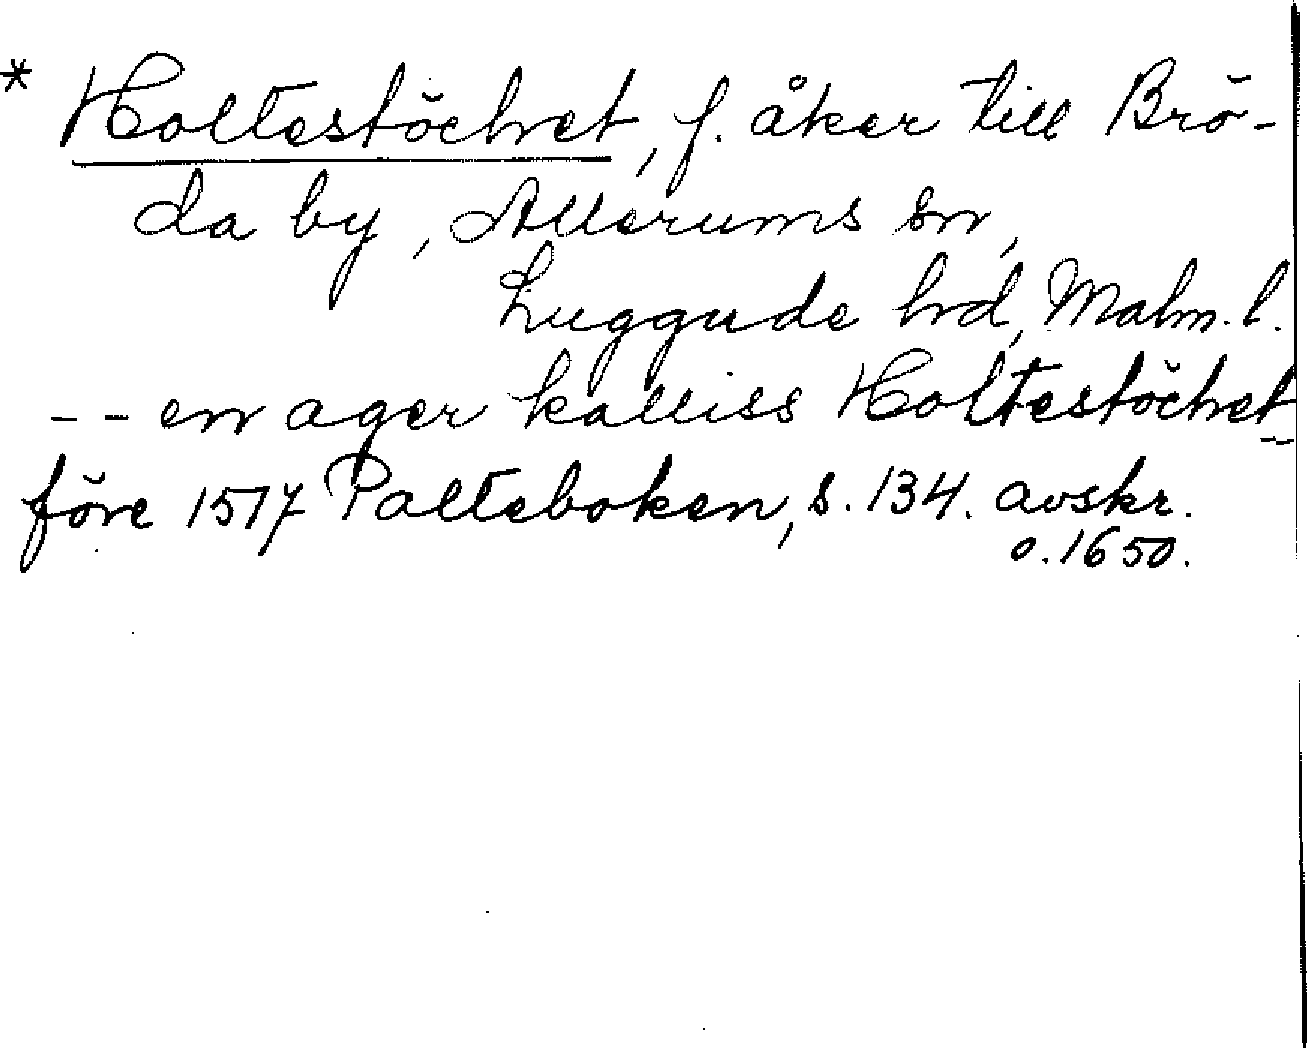 * Holtestöchet, f. åker till Brö-
da by, Allerums sn,
Luggude hd, Malm. l.
-- en ager kalliss Holtestöchet --
före 1517 Palteboken, s. 134. avskr.
o. 1650.